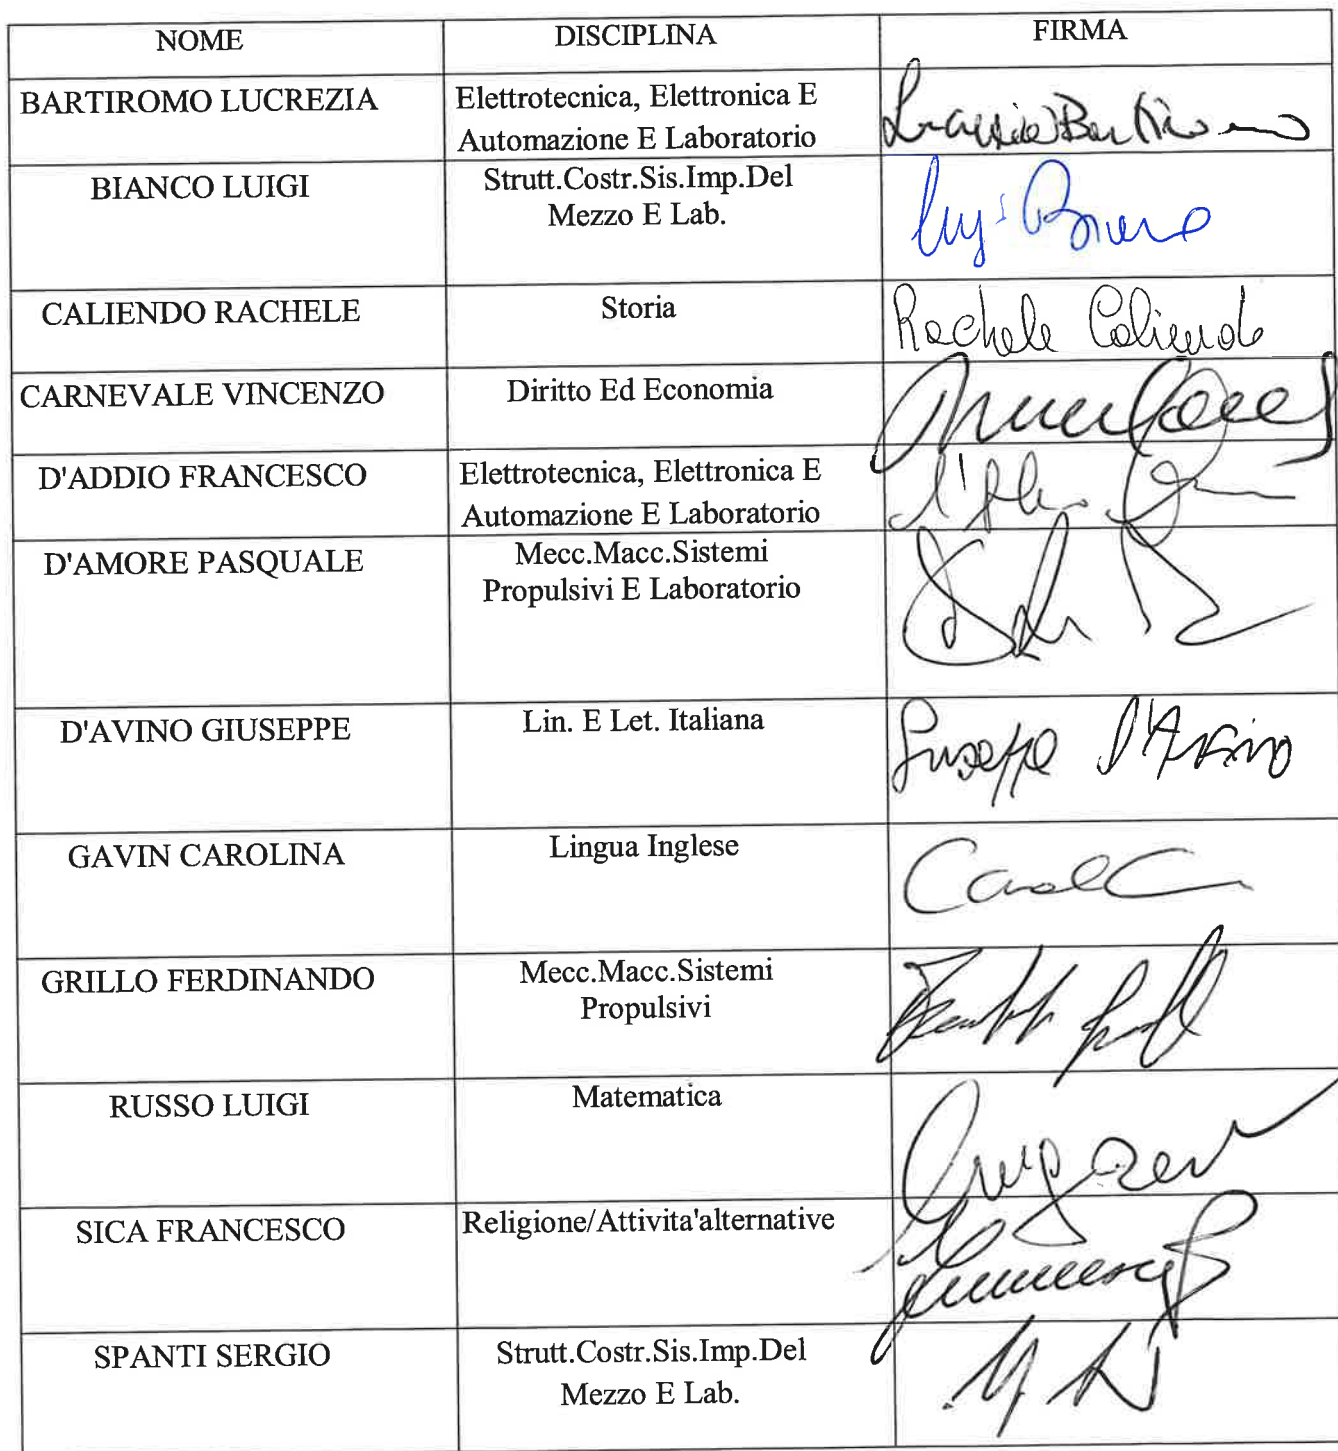 NOME DISCIPLINA FIRMA
BARTIROMO LUCREZIA Elettrotecnica, Elettronica E
Automazione E Laboratorio
BIANCO LUIGI Strutt.Costr.Sis.Imp.Del
Mezzo E Lab.
CALIENDO RACHELE Storia Rachele Caliendo
CARNEVALE VINCENZO Diritto Ed Economia
D'ADDIO FRANCESCO Elettrotecnica, Elettronica E
Automazione E Laboratorio
D'AMORE PASQUALE Mecc.Macc.Sistemi
Propulsivi E Laboratorio
D'AVINO GIUSEPPE Lin. E Let. Italiana Giuseppe D'Avino
GAVIN CAROLINA Lingua Inglese
GRILLO FERDINANDO Mecc.Macc.Sistemi
Propulsivi
RUSSO LUIGI Matematica
SICA FRANCESCO Religione/Attivita'alternative
SPANTI SERGIO Strutt.Costr.Sis.Imp.Del
Mezzo E Lab.